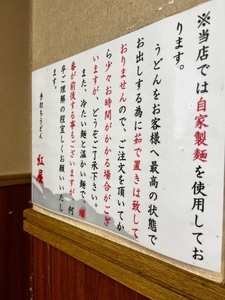 ※当店では自家製麺を使用してお
ります。
うどんをお客様へ最高の状態で
お出しする為に茹で置きは致して
おりませんので、ご注文を頂いてか
ら少々お時間がかかる場合がござ
いますが、どうぞご了承下さい。
また、冷たい麺と温かい麺で、順
番が前後する事もございますが、何
卒ご理解の程宜しくお願いいたし
ます。
手打ちうどん